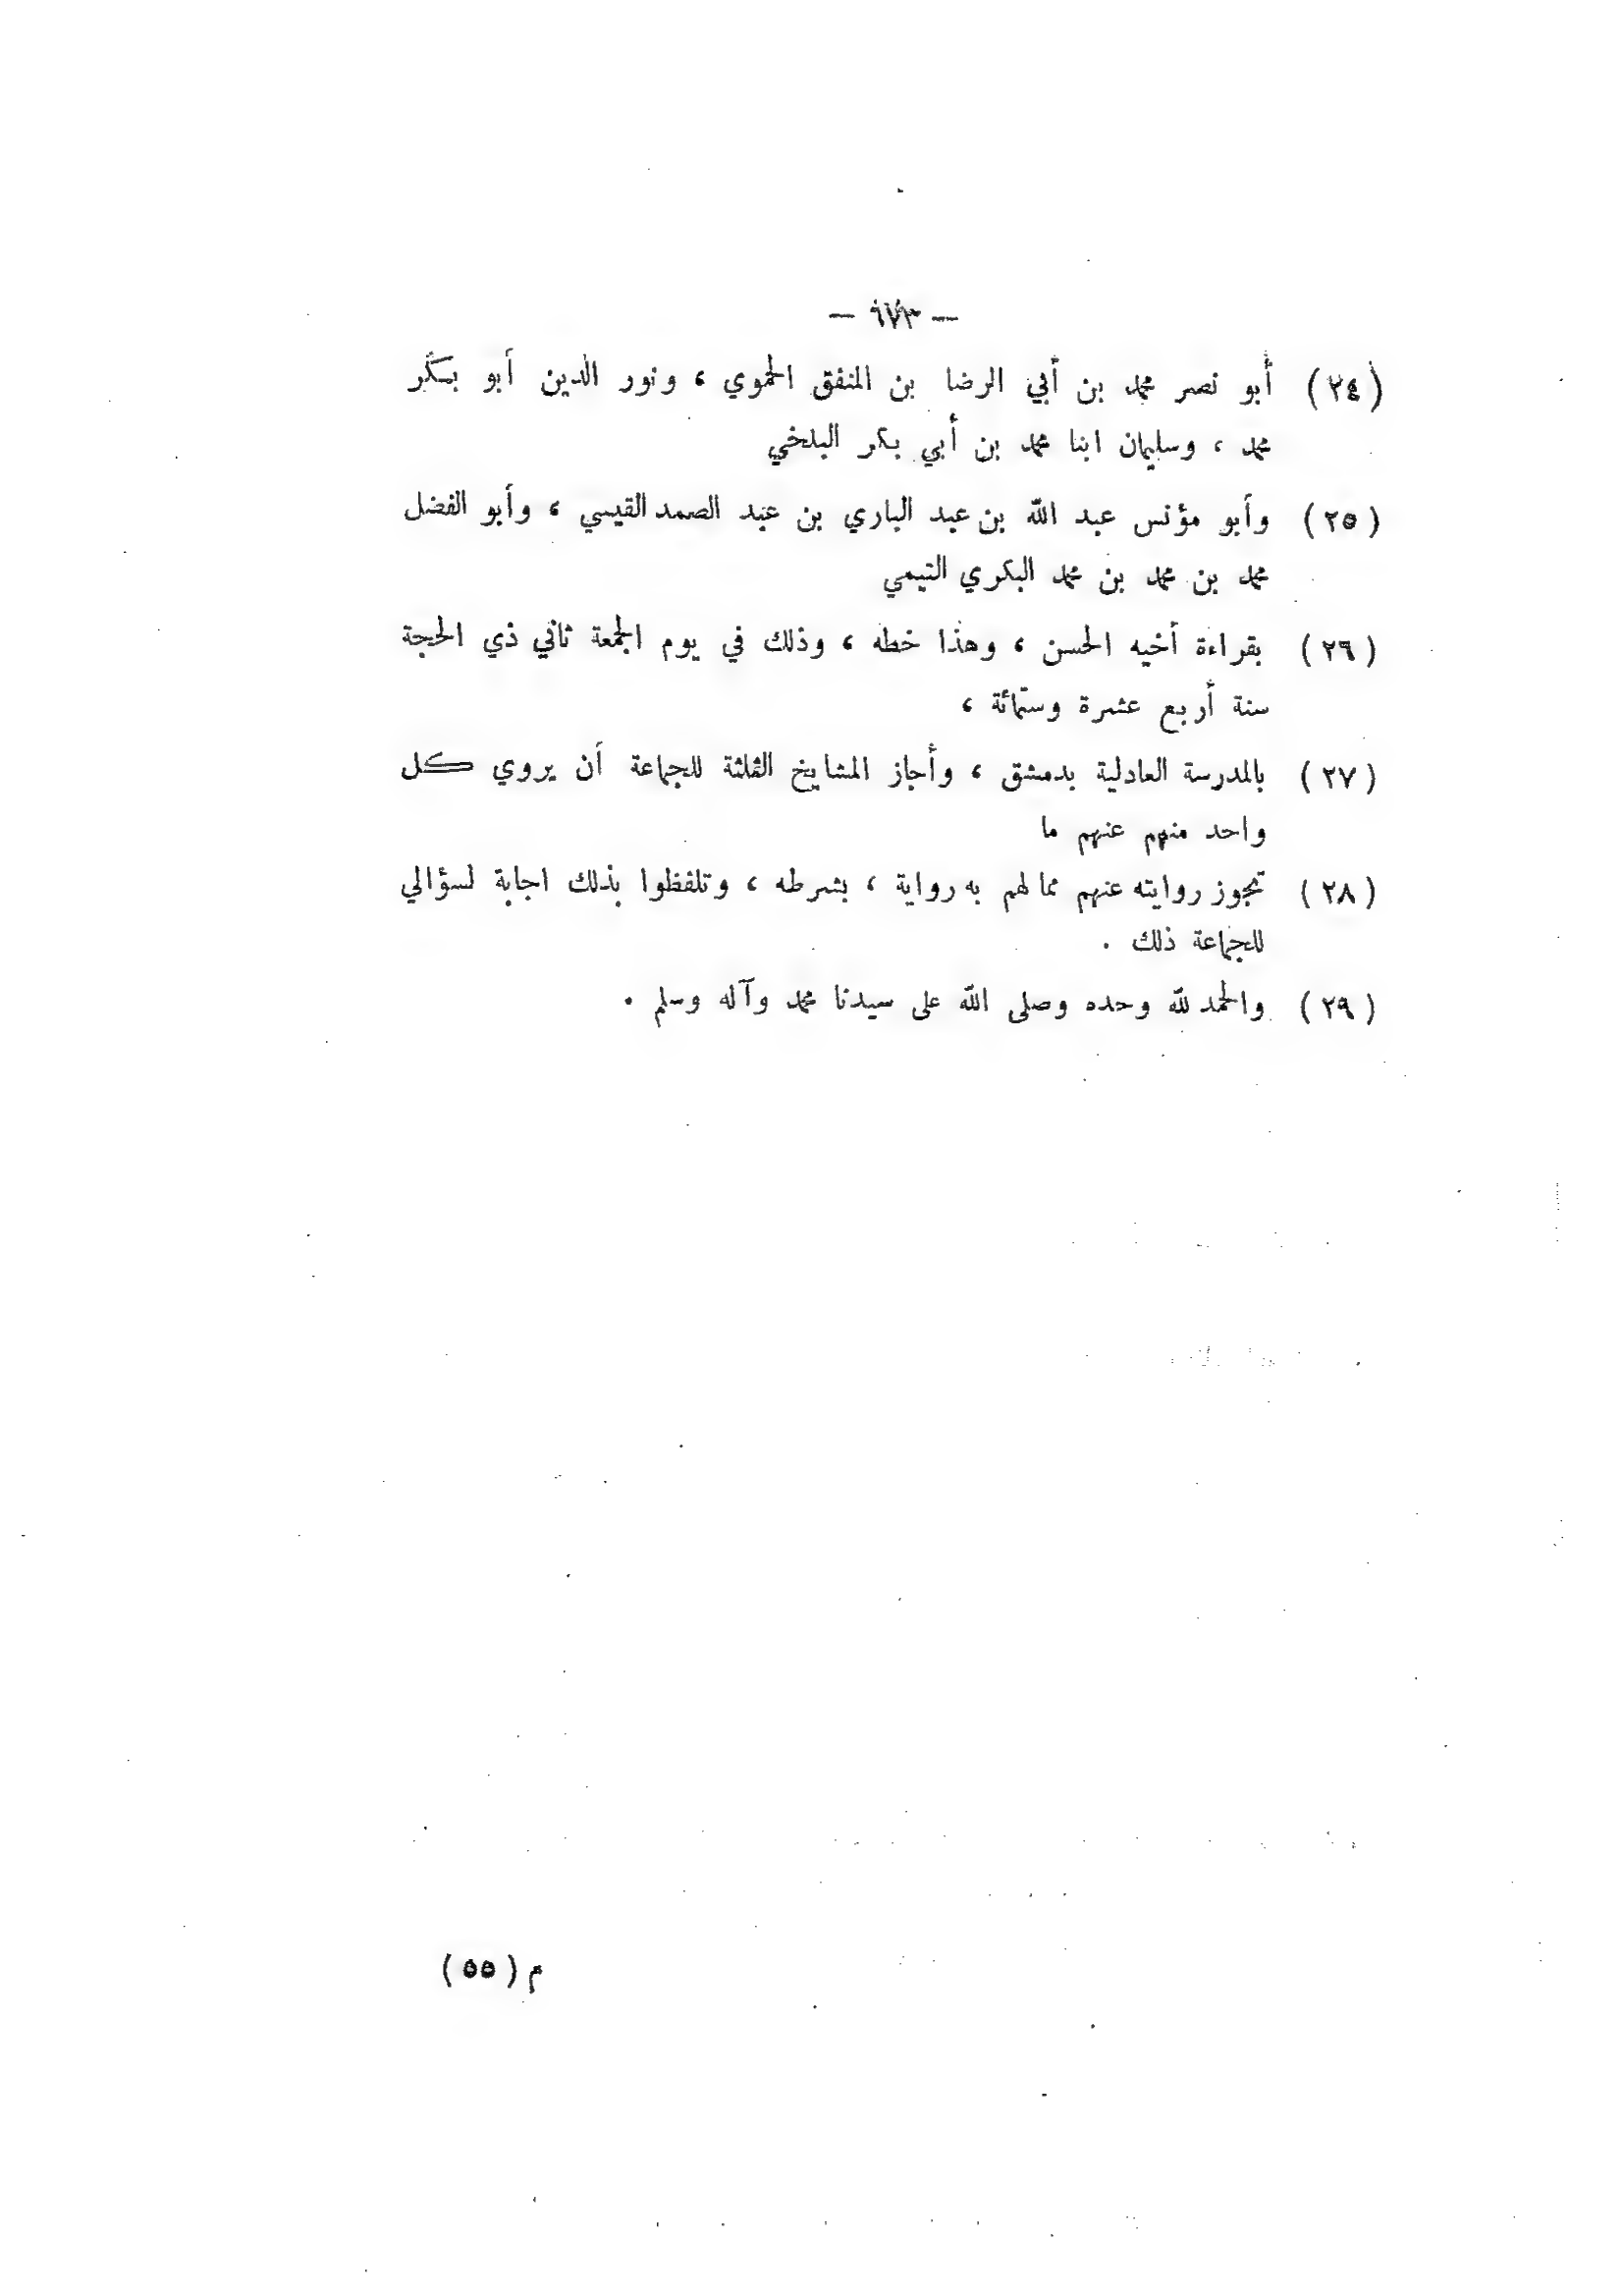 — ٦٧٣ —
(٢٤) أبو نصر محمد بن أبي الرضا بن المنفق الحموي ، ونور الدين أبو بكر
محمد ، وسليمان ابنا محمد بن أبي بكر البلخي
(٢٥) وأبو مؤنس عبد الله بن عبد الباري بن عبد الصمد القيسي ، وأبو الفضل
محمد بن محمد بن محمد البكري التيمي
(٢٦) بقراءة أخيه الحسن ، وهذا خطه ، وذلك في يوم الجمعة ثاني ذي الحجة
سنة أربع عشرة وستمائة ،
(٢٧) بالمدرسة العادلية بدمشق ، وأجاز المشايخ الثلثة للجماعة أن يروي كل
واحد منهم عنهم ما
(٢٨) تجوز روايته عنهم مما لهم به رواية ، بشرطه ، وتلفظوا بذلك اجابة لسؤالي
للجماعة ذلك .
(٢٩) والحمد لله وحده وصلى الله على سيدنا محمد وآله وسلم .
م (٥٥)